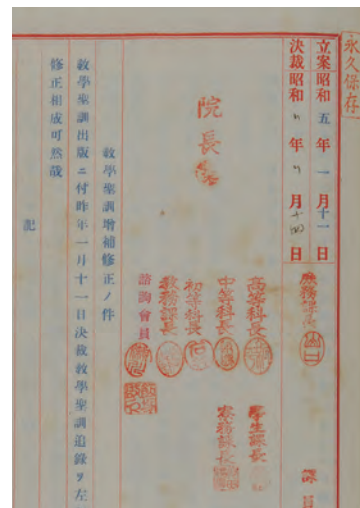 永久保存
立案昭和五年一月十一日
決裁昭和〃年〃月十四日
庶務課長
課員
院長
高等科長
學生課長
中等科長
寮務課長
初等科長
教務課長
諮詢會員
教學聖訓增補修正ノ件
教學聖訓出版ニ付昨年一月十一日決裁教學聖訓追錄ヲ左
修正相成可然哉
記